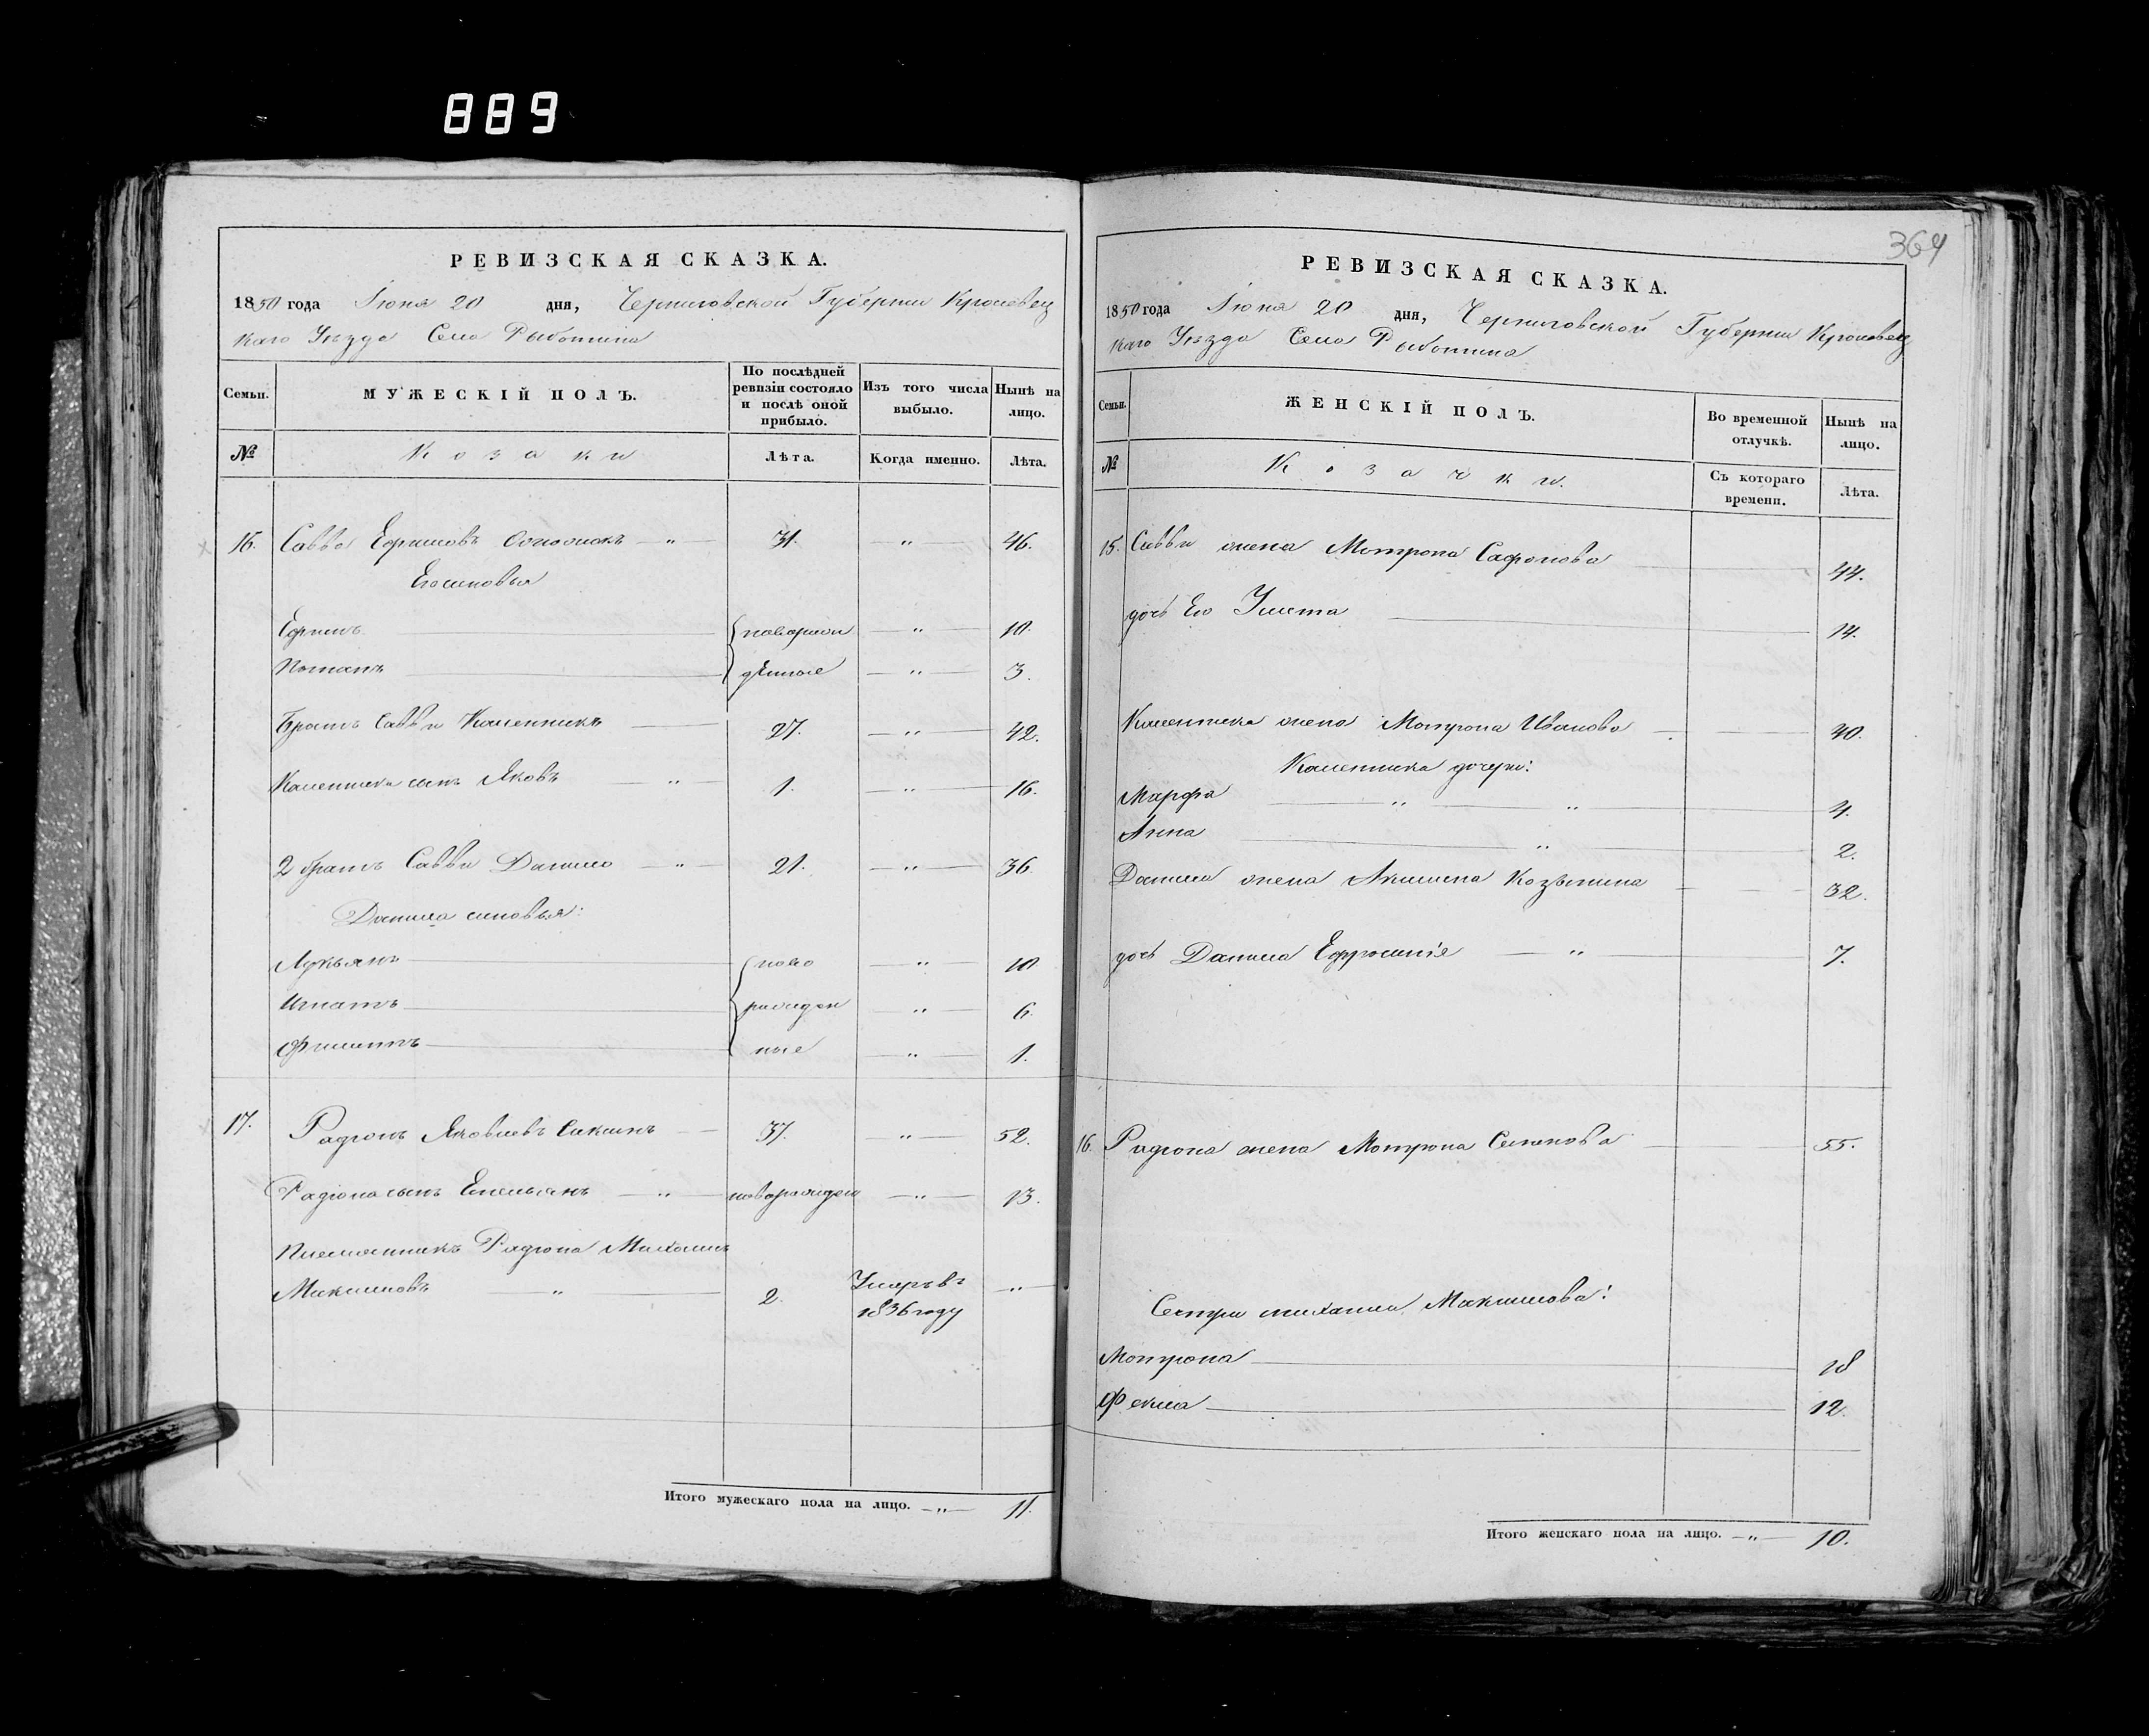 889
РЕВИЗСКАЯ СКАЗКА.
1850 года Іюня 20 дня, Черниговской Губерніи Кролевец
каго Уѣзда Села Рыботина
Семьи.
МУЖЕСКІЙ ПОЛЪ.
По послѣдней ревизіи состояло и послѣ оной прибыло.
Изъ того числа выбыло.
Нынѣ на лицо.
№
Козаки
Лѣта.
Когда именно.
Лѣта.
16. Савва Ефимовъ — „ — 31. „ 46.
Его синовья
Ефимъ новорож „ 10.
Потапъ денные „ 3.
Братъ Саввы Калениикъ 27. — „ — 42.
Каленика сынъ Яковъ — „ — 1. — „ — 16.
2 братъ Саввы Данило — „ — 21. — „ — 36.
Данила синовья:
Лукьянъ ново — „ — 10
Игнатъ рожден — „ — 6.
Филиппъ ные — „ — 1.
17. Радіонъ Яковлевъ 37. — „ — 52.
Радіона сынъ Емельянъ — „ — новорожден — „ — 13.
Племянникъ Радіона Михаилъ
Максимовъ — „ — 2. Умеръ въ — „ —
1836 году
Итого мужескаго пола на лицо. — „ — 11.
364
РЕВИЗСКАЯ СКАЗКА.
1850 года Іюня 20 дня, Черниговской Губерніи Кролевец
каго Уѣзда Села Рыботина
Семьи.
ЖЕНСКІЙ ПОЛЪ.
Во временной отлучкѣ.
Нынѣ на лицо.
№
Козачки.
Съ котораго времени.
Лѣта.
15. Саввы жена Мотрона Сафонова 44.
дочь Его Улита 14.
Каленика жена Мотрона Иванова 40.
Каленика дочери:
Марфа „ „ 4.
Анна „ 2.
Данила жена Акилина Козьмина 32.
дочь Данила Ефросинія — „ 7.
16. Радіона жена Мотрона Семенова 55.
Сестри михаила Максимова:
Мотрона 18
Фекла 12.
Итого женскаго пола на лицо. — „ — 10.